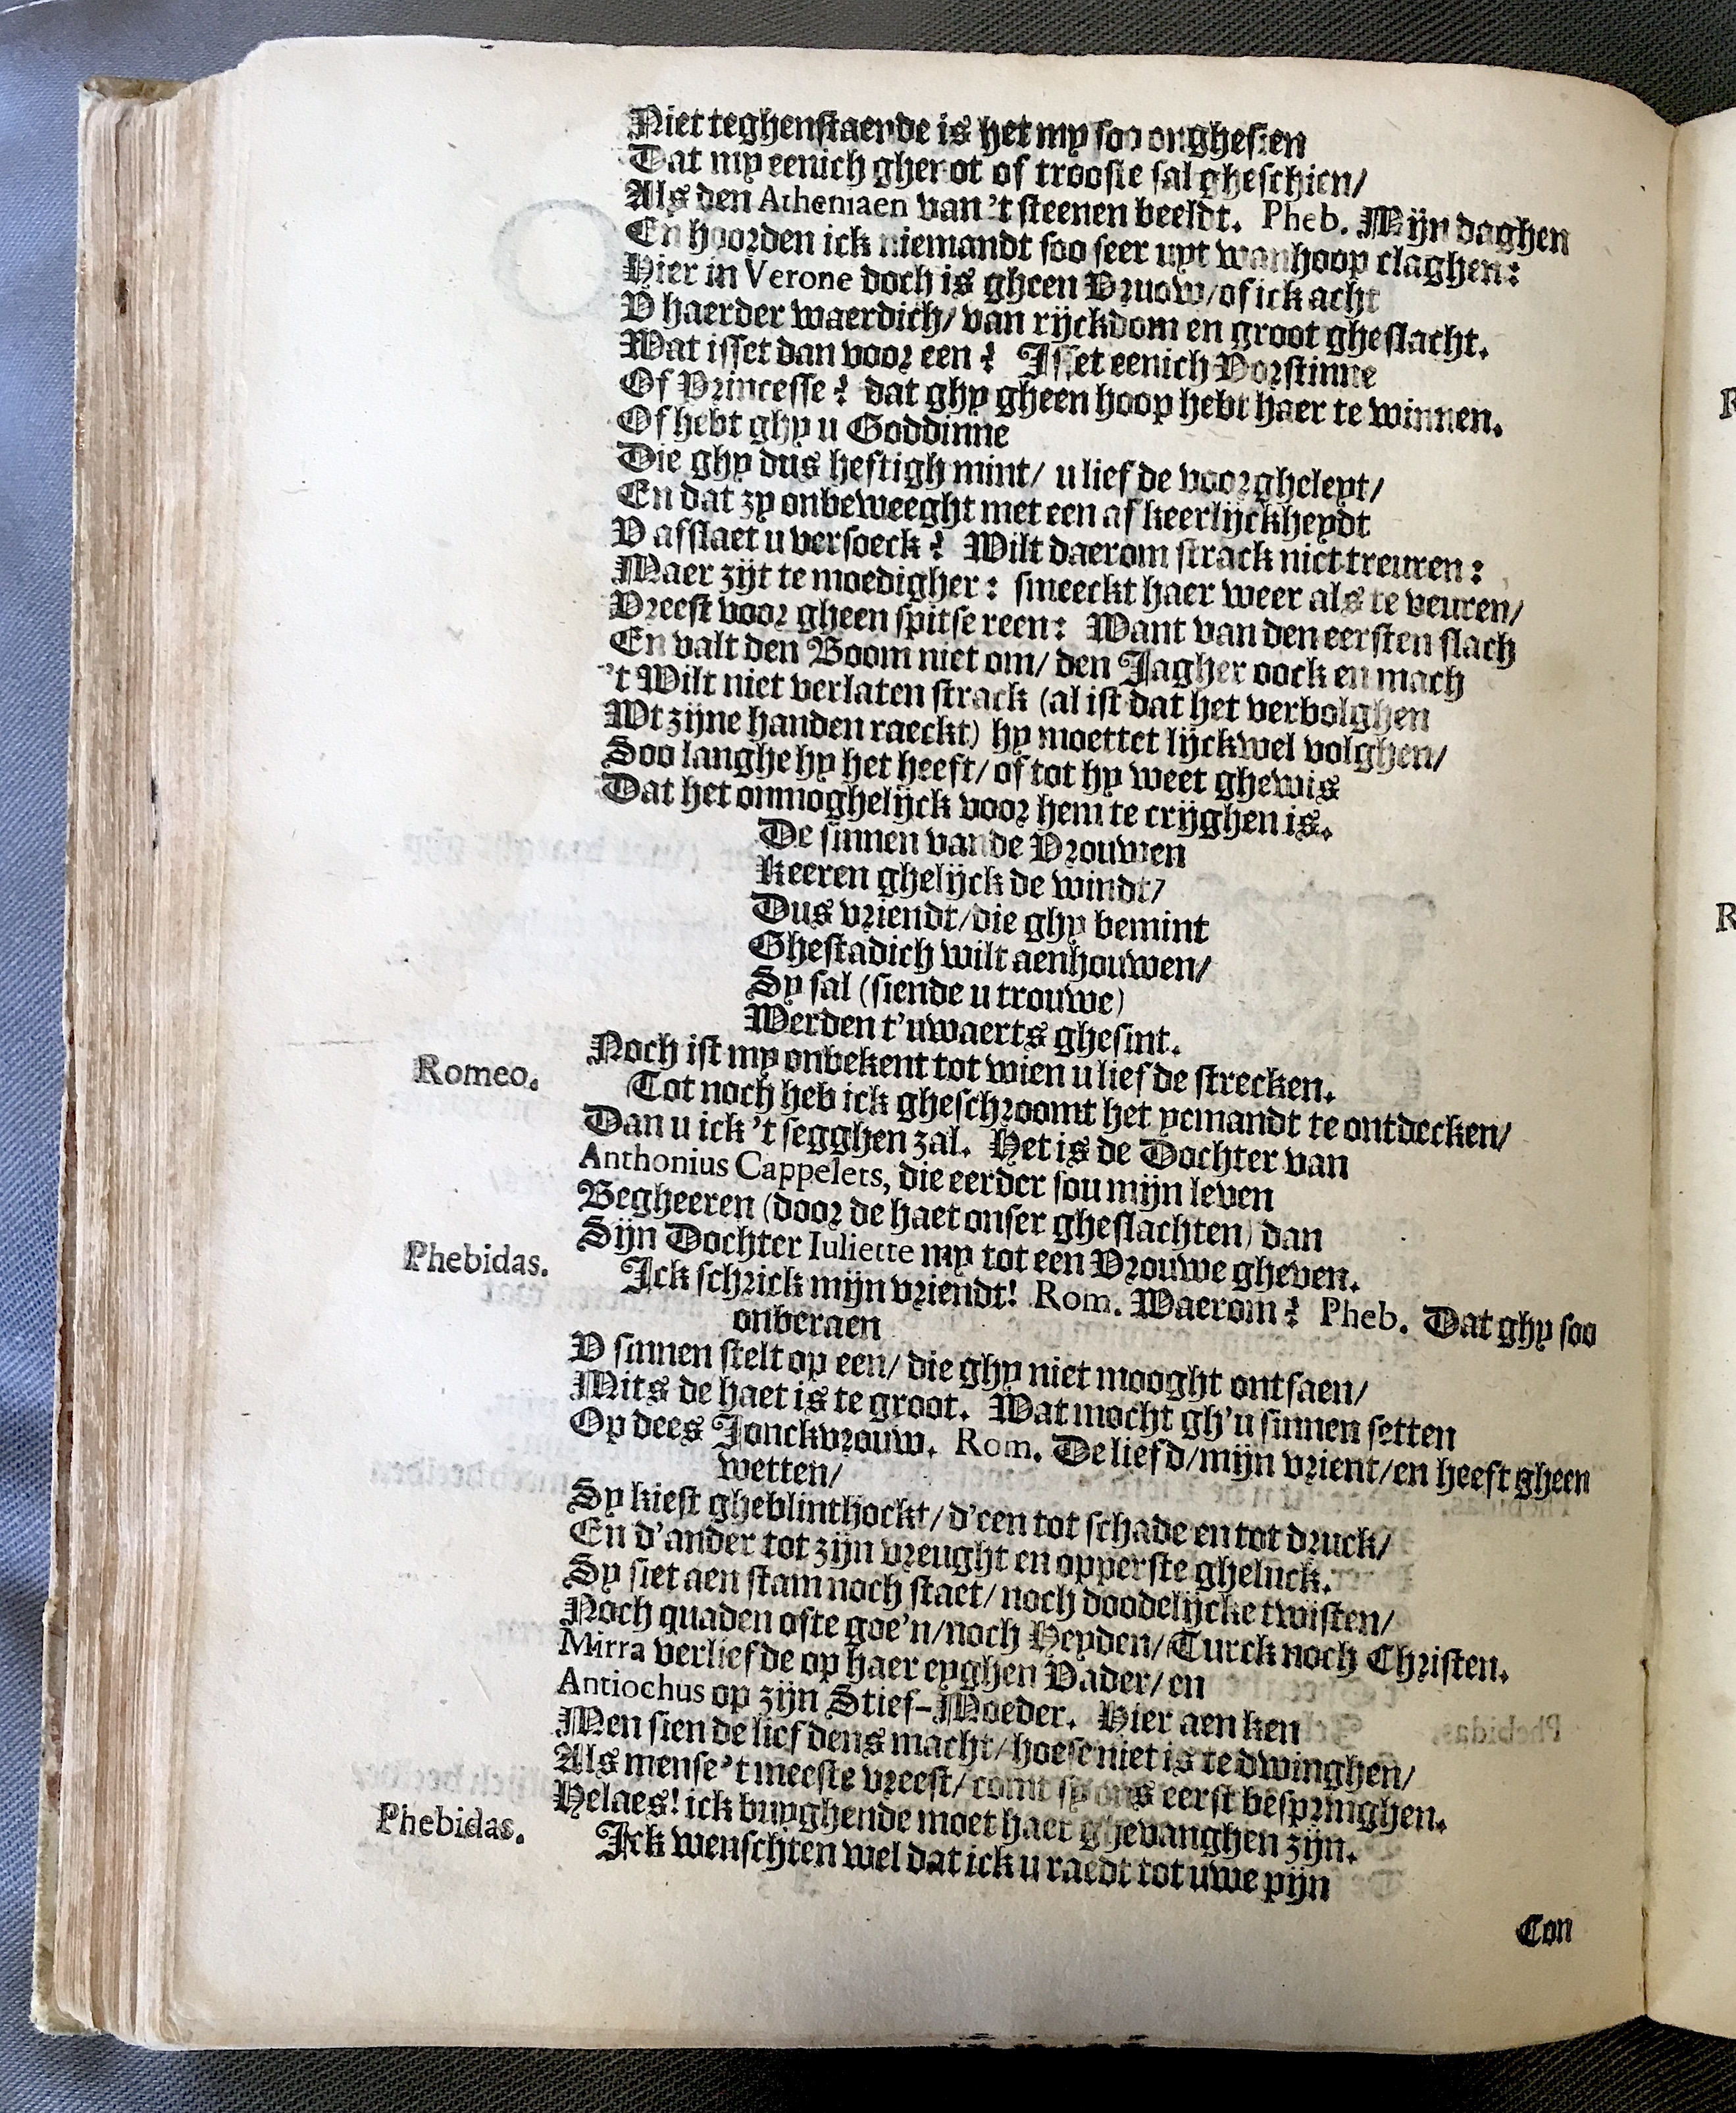 Niet teghenstaende is het my soo onghesien
Dat my eenich ghenot of trooste sal gheschien/
Als den Atheniaen van 't steenen beeldt. Pheb. Mijn daghen
En hoorden ick niemandt soo seer uyt wanhoop claghen:
Hier in Verone doch is gheen Vruow/of ick acht
V haerder waerdich/ van rijckdom en groot gheslacht.
Wat isset dan voor een? Isset eenich Vorstinne
Of Princesse? dat ghy gheen hoop hebt haer te winnen.
Of hebt ghy u Goddinne
Die ghy dus heftigh mint/ u liefde voorgheleyt/
En dat zy onbeweeght met een afkeerlijckheydt
V afslaet u versoeck? Wilt daerom strack niet treuren:
Maer zijt te moedigher: smeeckt haer weer als te veuren/
Vreest voor gheen spitse reen: Want van den eersten slach
En valt den Boom niet om/ den Jagher oock en mach
't Wilt niet verlaten strack (al ist dat het verbolghen
Wt zijne handen raeckt) hy moettet lijckwel volghen/
Soo langhe hy het heeft/ of tot hy weet ghewis
Dat het onmoghelijck voor hem te crijghen is.
De sinnen vande Vrouwen
Keeren ghelijck de windt/
Dus vriendt/die ghy bemint
Ghestadich wilt aenhouwen/
Sy sal (siende u trouwe)
Werden t'uwaerts ghesint.
Noch ist my onbekent tot wien u liefde strecken.
Romeo. Tot noch heb ick gheschroomt het yemandt te ontdecken/
Dan u ick 't segghen zal. Het is de Dochter van
Anthonius Cappelets, die eerder sou mijn leven
Begheeren (door de haet onser gheslachten) dan
Sijn Dochter Iuliette my tot een Vrouwe gheven.
Phebidas. Ick schrick mijn vriendt! Rom. Waerom? Pheb. Dat ghy soo
onberaen
V sinnen stelt op een/ die ghy niet mooght ontfaen/
Mits de haet is te groot. Wat mocht gh'u sinnen setten
Op dees Jonckvrouw. Rom. De liefd/mijn vrient/en heeft gheen
wetten/
Sy kiest gheblinthockt/ d'een tot schade en tot druck/
En d'ander tot zijn vreught en opperste gheluck.
Sy siet aen stam noch staet/ noch doodelijcke twisten/
Noch quaden ofte goe'n/noch Heyden/Turck noch Christen.
Mirra verliefde op haer eyghen Vader/ en
Antiochus op zijn Stief-Moeder. Hier aen ken
Men sien de liefdens macht/ hoese niet is te dwinghen/
Als mense 't meeste vreest/ comt sy ons eerst bespringhen.
Helaes! ick buyghende moet haer ghevanghen zijn.
Phebidas. Ick wenschten wel dat ick u raedt tot uwe pijn
Con